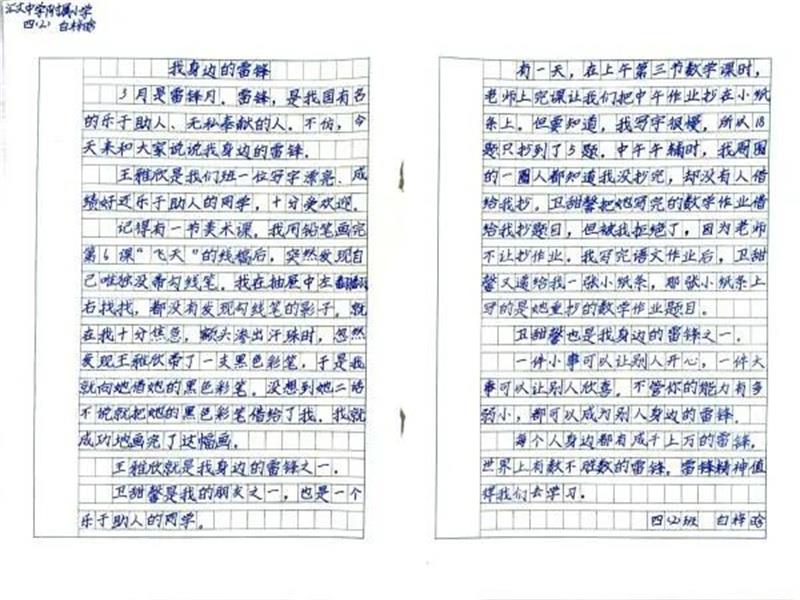 汇文中学附属小学
四(2) 白梓晗
我身边的雷锋
3月是雷锋月。雷锋,是我国有名
的乐于助人、无私奉献的人。不信,今
天来和大家说说我身边的雷锋。
王雅欣是我们班一位写字漂亮、成
绩好还乐于助人的同学,十分受欢迎。
记得有一节美术课,我用铅笔画完
第6课“飞天”的线稿后,突然发现自
己唯独没带勾线笔。我在抽屉中左翻
右找找,都没有发现勾线笔的影子。就
在我十分焦急,额头渗出汗珠时,忽然
发现王雅欣带了一支黑色彩笔,于是我
就向她借她的黑色彩笔。没想到她二话
不说就把她的黑色彩笔借给了我。我就
成功地画完了这幅画。
王雅欣就是我身边的雷锋之一。
卫甜馨是我的朋友之一,也是一个
乐于助人的同学。
有一天,在上午第三节数学课时,
老师上完课让我们把中午作业抄在小纸
条上。但要知道,我写字很慢,所以18
题只抄到了5题。中午午辅时,我周围
的一圈人都知道我没抄完,却没有人借
给我抄。卫甜馨把她写完的数学作业借
给我抄题目,但被我拒绝了,因为老师
不让抄作业。我写完语文作业后,卫甜
馨又递给我一张小纸条,那张小纸条上
写的是她重抄的数学作业题目。
卫甜馨也是我身边的雷锋之一。
一件小事可以让别人开心,一件大
事可以让别人欣喜。不管你的能力有多
弱小,都可以成为别人身边的雷锋。
每个人身边都有成千上万的雷锋。
世界上有数不胜数的雷锋。雷锋精神值
得我们去学习。
四(2)班 白梓晗